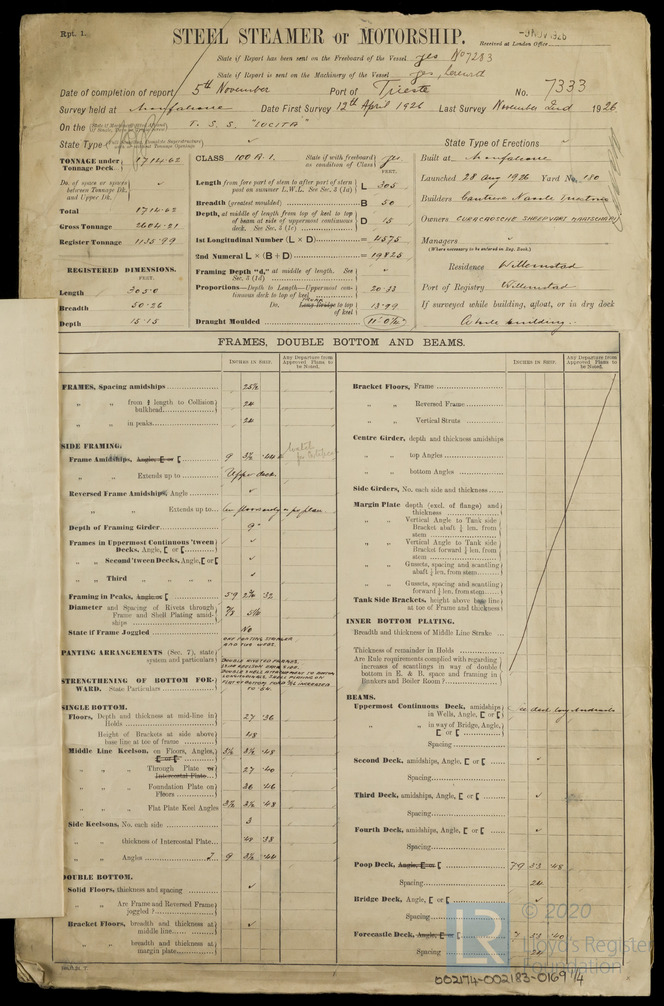 Rpt. 1.
STEEL STEAMER or MOTORSHIP.
Received at London Office
State if Report has been sent on the Freeboard of the Vessel yes No 7283
State if Report is sent on the Machinery of the Vessel yes,
Date of completion of report 5th November Port of Trieste No. 7333
Survey held at Monfalcone Date First Survey 12th April 1926 Last Survey November 2nd 1926
On the T. S. S. "LUCITA"
State Type State Type of Erections
TONNAGE under Tonnage Deck 1714.62
CLASS 100 A.1. State if with freeboard as condition of Class yes
Built at Monfalcone
Do. of space or spaces between Tonnage Dk. and Upper Dk.
Length from fore part of stem to after part of stern post on summer L.W.L. See Sec. 3 (1a) L 305
Launched 28 Aug 1926 Yard No. 180
Total 1714.62
Breadth (greatest moulded) B 50
Builders Cantiere Navale Triestino
Gross Tonnage 2604.21
Depth, at middle of length from top of keel to top of beam at side of uppermost continuous deck. See Sec. 3 (1c) D 15
Owners CURACAOSCHE SHEEPVART MAATSCHAPPY
Register Tonnage 1135.99
1st Longitudinal Number (L × D) = 4575
Managers
(Where necessary to be entered in Reg. Book.)
2nd Numeral L × (B + D) = 19825
Residence Willemstad
REGISTERED DIMENSIONS.
FEET.
Framing Depth "d," at middle of length. See Sec. 3 (1d)
Port of Registry Willemstad
Length 305.0
Proportions—Depth to Length—Uppermost continuous deck to top of keel 20.33
If surveyed while building, afloat, or in dry dock
Breadth 50.26
Do. Long Bridge to top of keel 13.99
While building.
Depth 15.15
Draught Moulded
FRAMES, DOUBLE BOTTOM AND BEAMS.
INCHES IN SHIP. Any Departure from Approved Plans to be Noted.
INCHES IN SHIP. Any Departure from Approved Plans to be Noted.
FRAMES, Spacing amidships 25½
" " from ⅕ length to Collision bulkhead 24
" " in peaks 24
SIDE FRAMING.
Frame Amidships, Angle, [ or [ 9 3½ .44
" " Extends up to Upper deck
Reversed Frame Amidships, Angle
" " Extends up to
Depth of Framing Girder 9"
Frames in Uppermost Continuous 'tween Decks, Angle, [ or [
" " Second 'tween Decks, Angle, [ or [
" " Third " " " "
Framing in Peaks, Angle or [
Diameter and Spacing of Rivets through Frame and Shell Plating amidships ⅞
State if Frame Joggled No
PANTING ARRANGEMENTS (Sec. 7), state system and particulars
STRENGTHENING OF BOTTOM FORWARD. State Particulars
SINGLE BOTTOM.
Floors, Depth and thickness at mid-line in Holds 27 .36
Height of Brackets at side above base line at toe of frame 48
Middle Line Keelson, on Floors, Angles, [ or [ 3½ 3½ .48
" " Through Plate or Intercostal Plate 27 .40
" " Foundation Plate on Floors 36 .46
" " Flat Plate Keel Angles 3½ 3½ .48
Side Keelsons, No. each side 3
" " thickness of Intercostal Plate .38
" " Angles 7 9 3½ .44
DOUBLE BOTTOM.
Solid Floors, thickness and spacing
" " Are Frame and Reversed Frame joggled?
Bracket Floors, breadth and thickness at middle line
" " breadth and thickness at margin plate
Bracket Floors, Frame
" " Reversed Frame
" " Vertical Struts
Centre Girder, depth and thickness amidships
" " top Angles
" " bottom Angles
Side Girders, No. each side and thickness
Margin Plate depth (excl. of flange) and thickness
" " Vertical Angle to Tank side Bracket abaft ¼ len. from stem
" " Vertical Angle to Tank side Bracket forward ¼ len. from stem
" " Gussets, spacing and scantling abaft ¼ len. from stem
" " Gussets, spacing and scantling forward ¼ len. from stem
Tank Side Brackets, height above base line at toe of Frame and thickness
INNER BOTTOM PLATING.
Breadth and thickness of Middle Line Strake
Thickness of remainder in Holds
Are Rule requirements complied with regarding increases of scantlings in way of double bottom in E. & B. space and framing in Bunkers and Boiler Room?
BEAMS.
Uppermost Continuous Deck, amidships in Wells, Angle, [ or [
" " in way of Bridge, Angle, [ or [
Spacing
Second Deck, amidships, Angle, [ or [
Spacing
Third Deck, amidships, Angle, [ or [
Spacing
Fourth Deck, amidships, Angle, [ or [
Spacing
Poop Deck, Angle, [ or [
Spacing 24
Bridge Deck, Angle, [ or [
Spacing
Forecastle Deck, Angle, [ or [
Spacing 24
© 2020
LR
Lloyd's Register
Foundation
002174-002183-0169 1/4